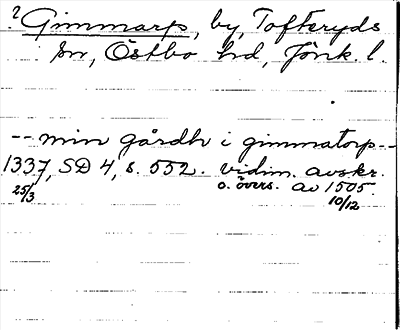 ? Gimmarp, by, Tofteryds
sn, Östbo hd, Jönk. l.
-- min gårdh i gimmatorp --
1337, SD 4, s. 552. vidim. avskr.
25/3 o. övers. av 1505.
10/12